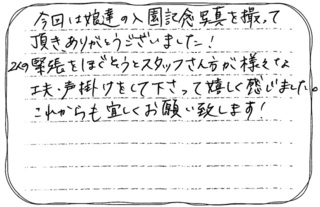 今回は娘達の入園記念写真を撮って
頂きありがとうございました!
2人の緊張をほぐそうとスタッフさん方が様々な
工夫・声掛けをして下さって嬉しく感じました。
これからも宜しくお願い致します!